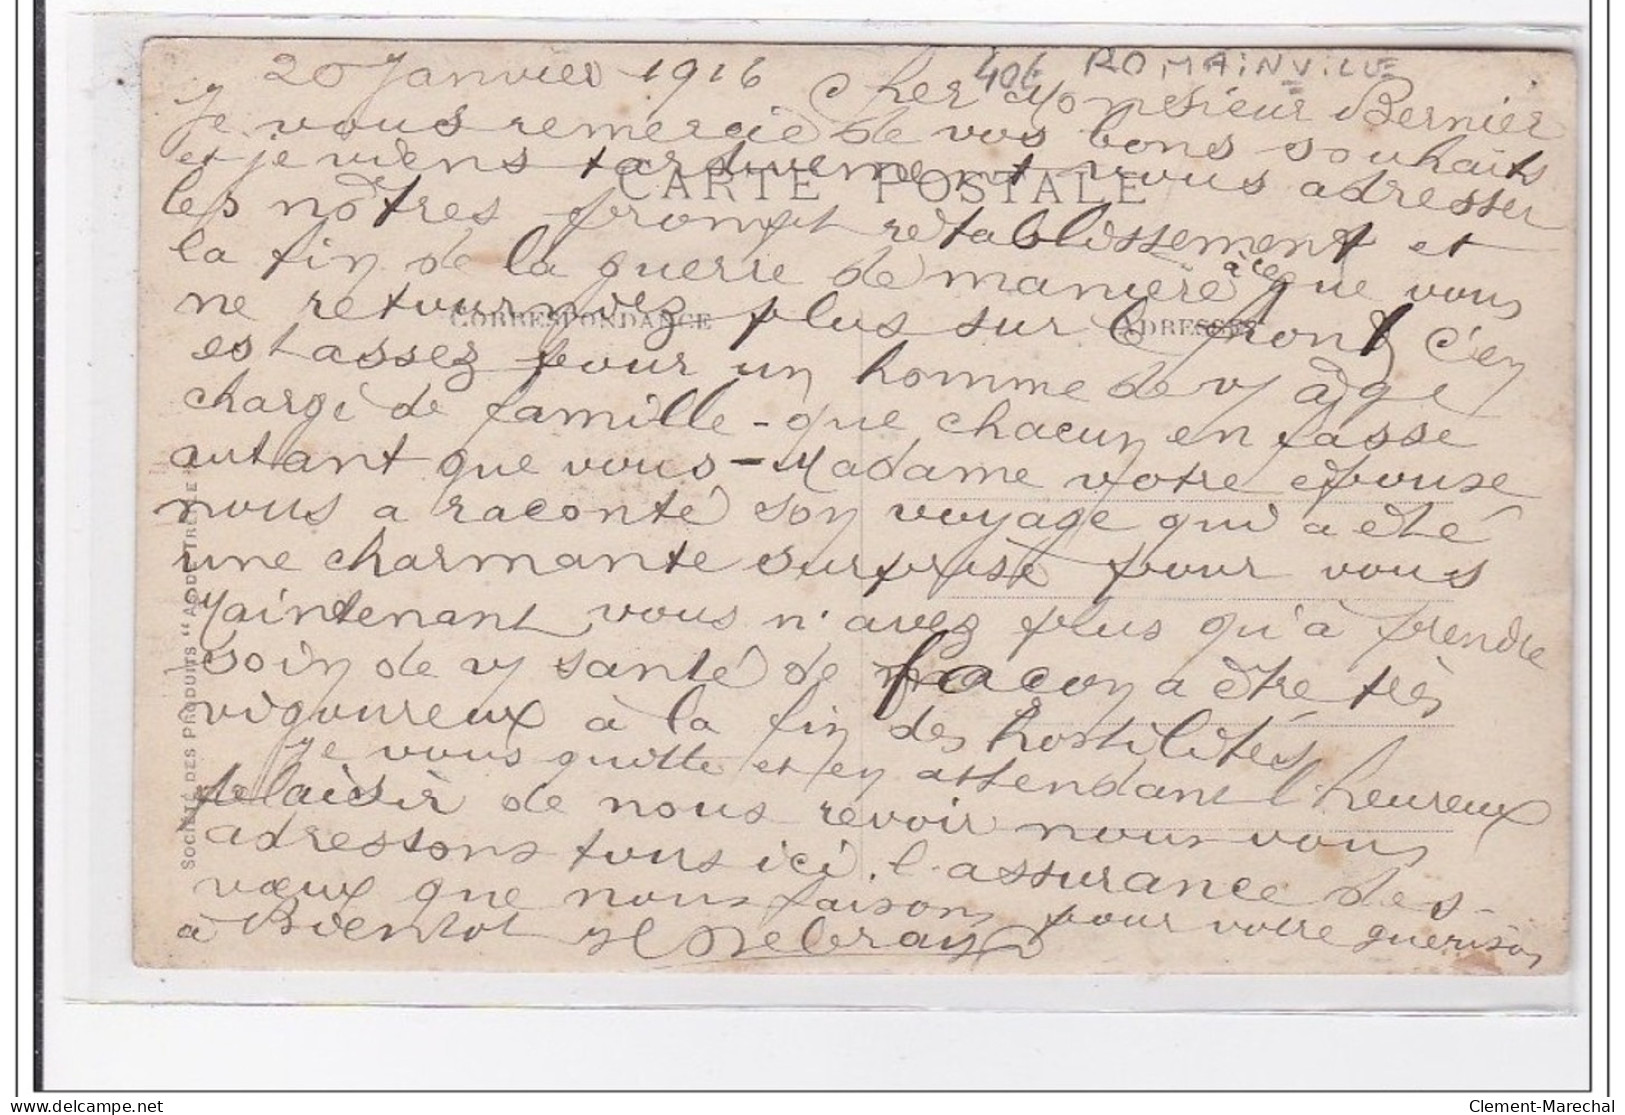 40€ ROMAINVILLE
20 Janvier 1916 Cher Monsieur Bernier
Je vous remercie de vos bons souhaits
et je viens tardivement vous adresser
CARTE POSTALE
les nôtres prompt rétablissement et
la fin de la guerre de manière à ce que vous
ne retourniez plus sur le front c'en
CORRESPONDANCE
ADRESSE
est assez pour un homme de v/ âge
chargé de famille - que chacun en fasse
autant que vous - Madame votre épouse
nous a raconté son voyage qui a été
une charmante surprise pour vous
Maintenant vous n'avez plus qu'à prendre
soin de v/ santé de facon a être très
vigoureux à la fin des hostilités
Je vous quitte et en attendant l'heureux
plaisir de nous revoir nous vous
adressons tous ici l'assurance des
vœux que nous faisons pour votre guérison
à Bientot
SOCIÉTÉ DES PRODUITS "
Clement-Marechal